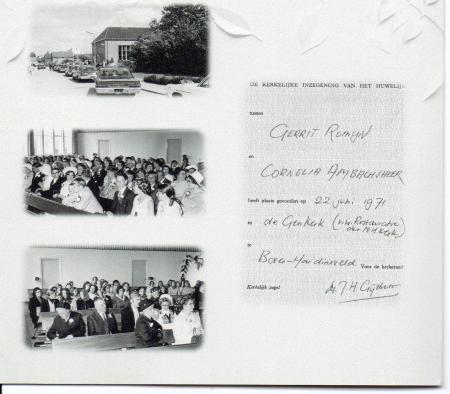 DE KERKELIJKE INZEGENING VAN HET HUWELIJK
tussen
GERRIT ROMIJN
en
CORNELIA AMBACHTSHEER
heeft plaats gevonden op 22 juni 1971
in de Ger. Kerk (v.w. Restauratie
der N.H. Kerk)
te Boven-Hardinxveld Voor de kerkeraad
Kerkelijk zegel Ds. J.H.